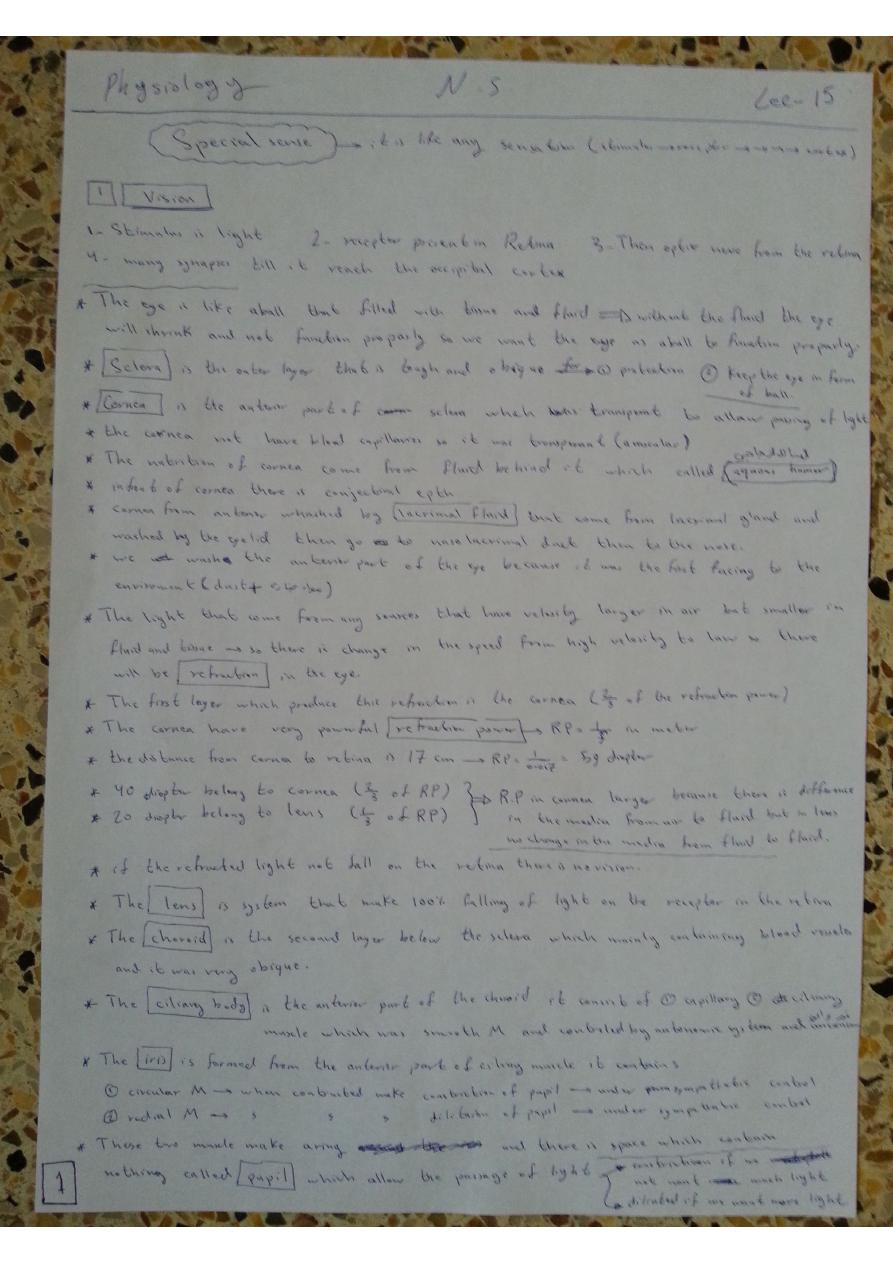 Physiology N.S Lec-15
Special sense → it is like any sensation (stimulus → receptor → → → → cortex)
1 Vision
1- Stimulus is light 2- receptor present in Retina 3- Then optic nerve from the retina
4- many synapses till it reach the occipital cortex
* The eye is like aball that filled with tissue and fluid ⇒ without the fluid the eye
will shrink and not function properly so we want the eye as aball to function properly.
* Sclera is the outer layer that is tough and obique for → ① protection ② Keep the eye in form
of ball.
* Cornea is the anterior part of sclera which was transparent to allow passing of light
* the cornea not have blood capillaries so it was transparent (avascular)
* The nutrition of cornea come from fluid behind it which called (aqueous humor)
* infront of cornea there is conjectival epth
* cornea from anterior whashed by lacrimal fluid that come from lacrimal gland and
washed by the eyelid then go to nasolacrimal duct then to the nose.
* we wash the anterior part of the eye because it was the first facing to the
enviroment (dust +
* The light that come from any sources that have velocity larger in air but smaller in
fluid and tissue → so there is change in the speed from high velocity to low so there
will be refraction in the eye.
* The first layer which produce this refraction is the cornea (2/3 of the refraction power)
* The cornea have very powerful refraction power → RP = 1/f in meter
* the distance from cornea to retina is 17 cm → RP = 1/0.017 = 59 diopter
* 40 diopter belong to cornea (2/3 of RP) } ⇒ R.P in cornea larger because there is difference
* 20 diopter belong to lens (1/3 of RP) in the media from air to fluid but in lens
no change in the media from fluid to fluid.
* if the refracted light not fall on the retina there is no vision.
* The lens is system that make 100% falling of light on the receptor in the retina
* The choroid is the second layer below the sclera which mainly containing blood vessles
and it was very obique.
* The ciliary body is the anterior part of the choroid it consist of ① capillary ② ciliary
muscle which was smooth M and controled by autonomic system and
* The iris is formed from the anterior part of ciliary muscle it contains
① circular M → when contructed make constriction of pupil → under parasympathatic control
② radial M → s s s dilitation of pupil → under sympathatic control
* These two muscle make aring and there is space which contain
nothing called pupil which allow the passage of light → constriction if we
not want much light
→ dilitated if we want more light
1